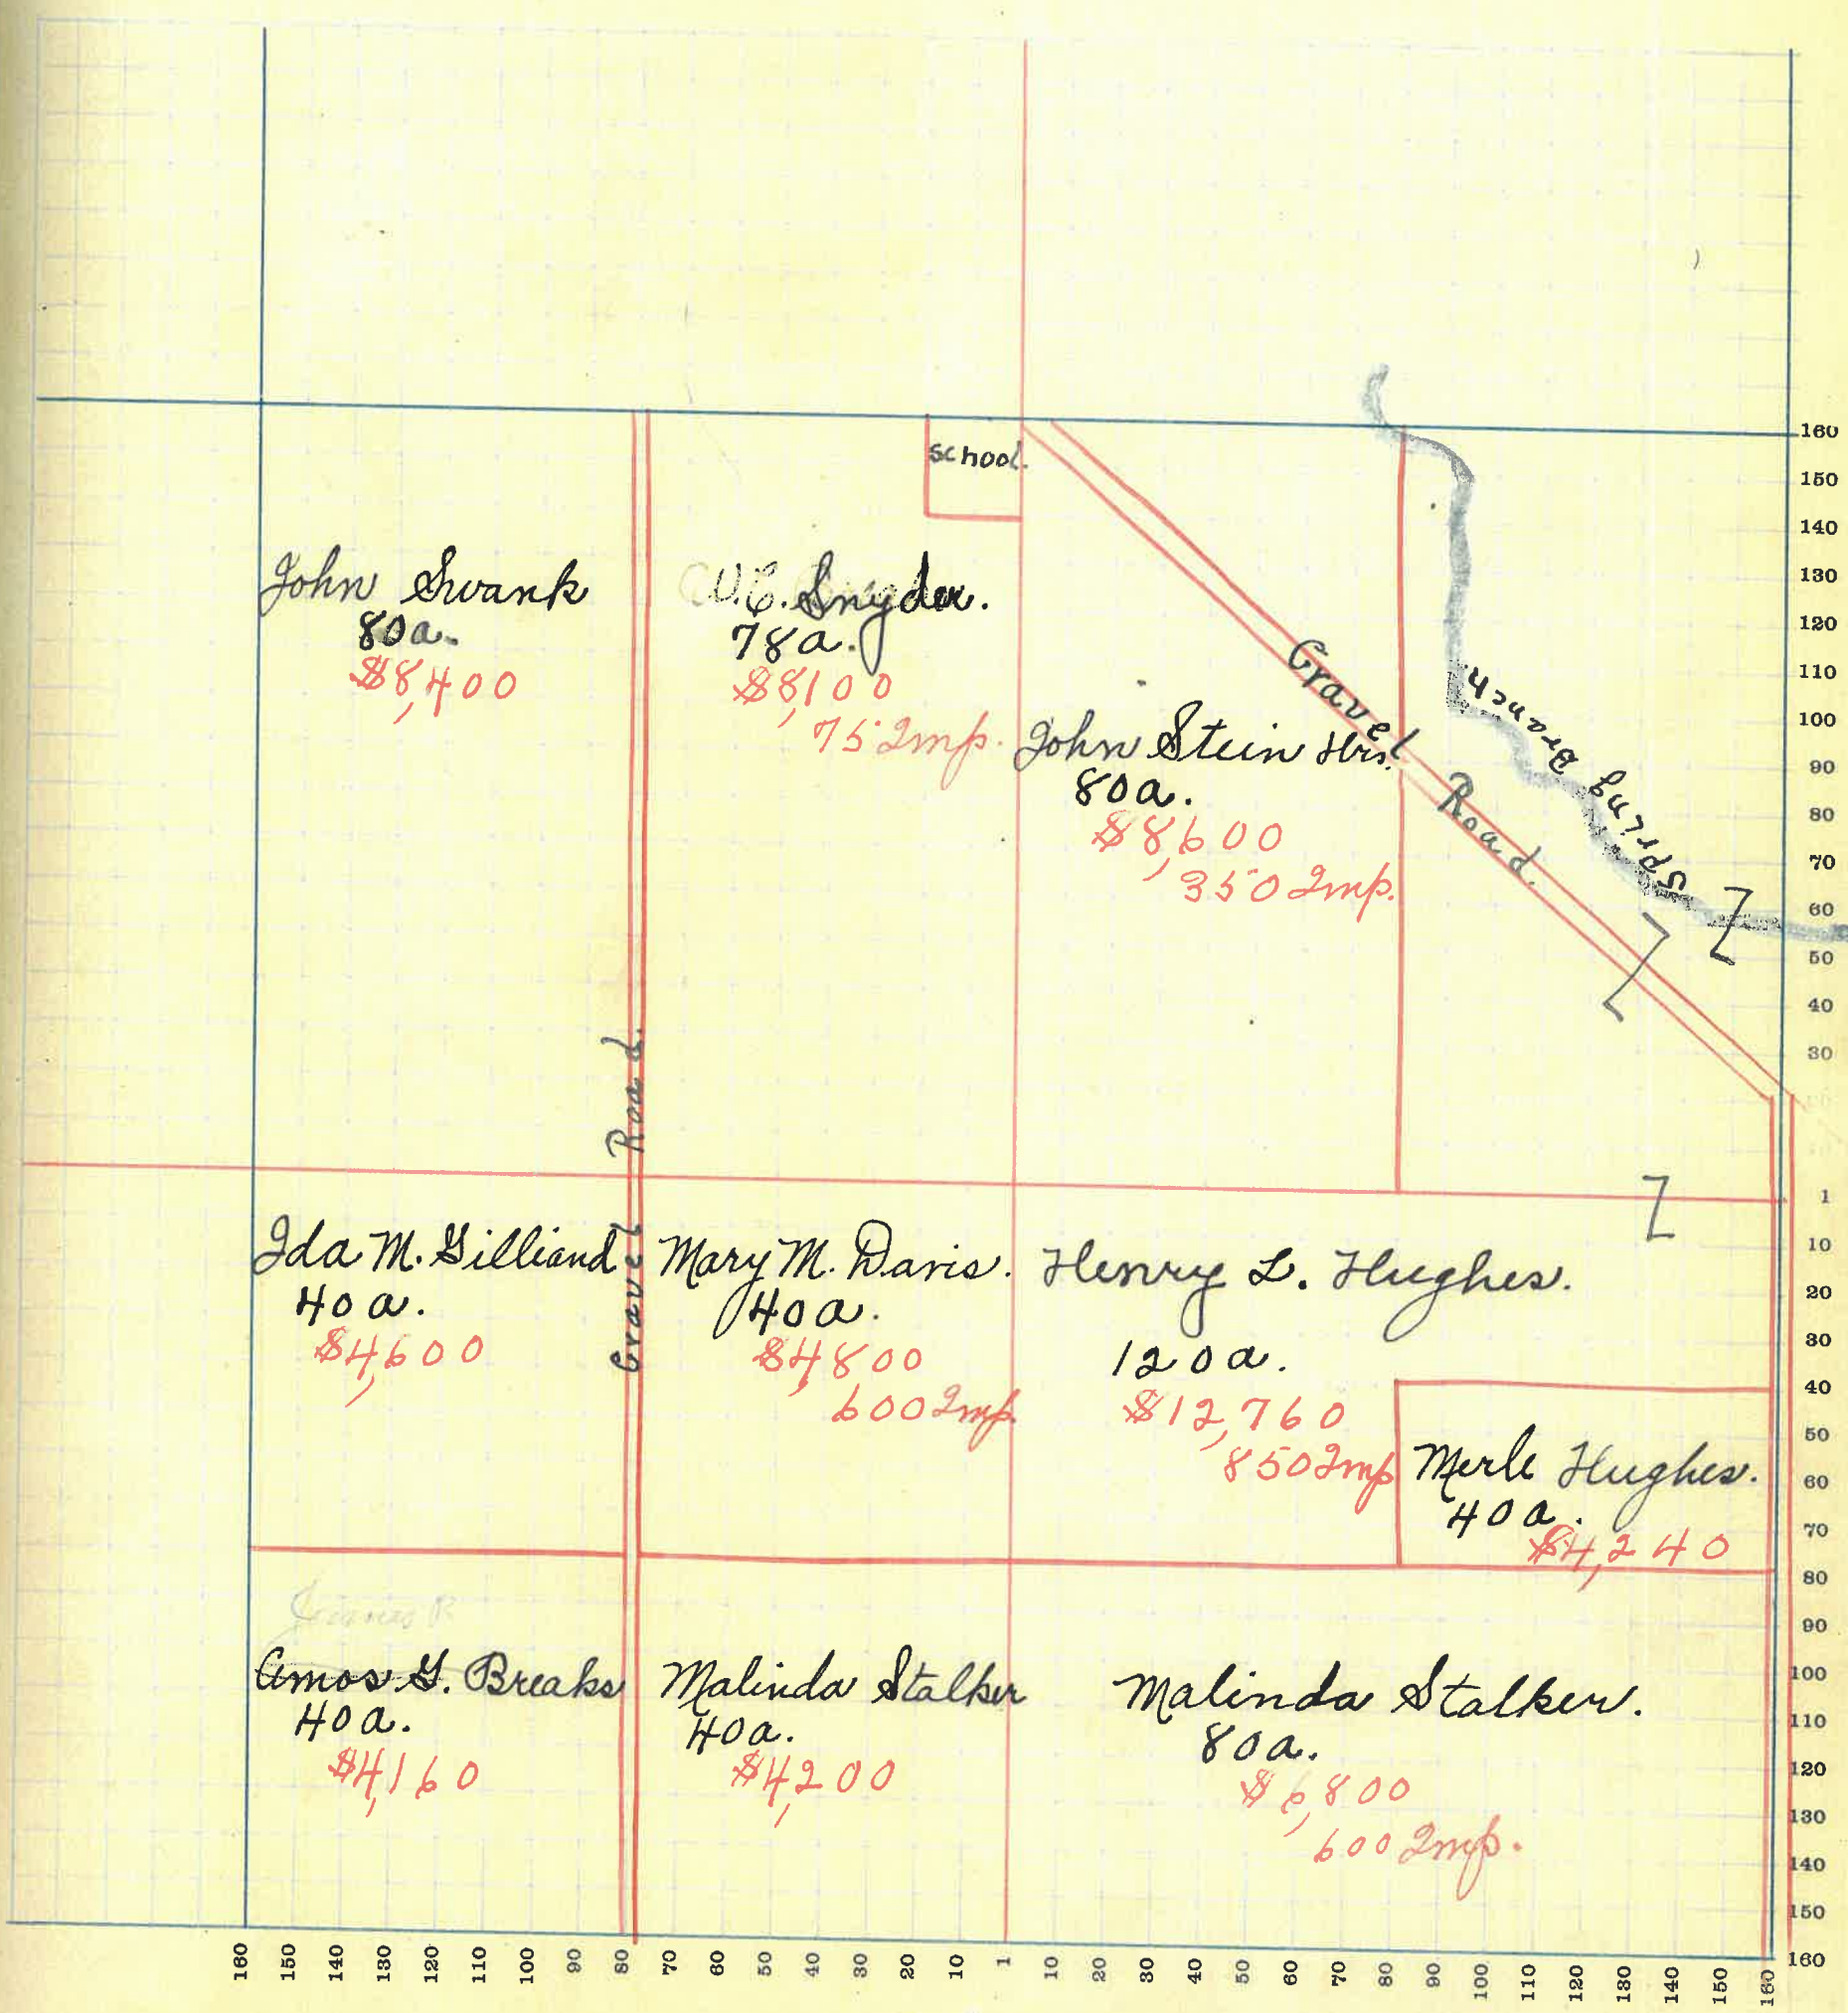 school.
John Swank
80a.
$8,400
W.C. Snyder.
78a.
$8,100
75 Imp.
John Stein Hrs.
80a.
$8,600
350 Imp.
Gravel Road.
Spring Branch.
Gravel Road.
Ida M. Gilliand
40a.
$4,600
Mary M. Davis.
40a.
$4,800
600 Imp.
Henry L. Hughes.
120a.
$12,760
850 Imp
Merle Hughes.
40a.
$4,240
Amos G. Breaks
40a.
$4,160
Malinda Stalker
40a.
$4,200
Malinda Stalker.
80a.
$6,800
600 Imp.
160
150
140
130
120
110
100
90
80
70
60
50
40
30
1
10
20
30
40
50
60
70
80
90
100
110
120
130
140
150
160
160 150 140 130 120 110 100 90 80 70 60 50 40 30 20 10 1 10 20 30 40 50 60 70 80 90 100 110 120 130 140 150 160